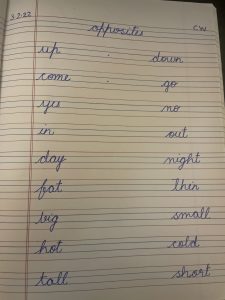 3.2.22 opposites CW
up down
come go
yes no
in out
day night
fat thin
big small
hot cold
tall short